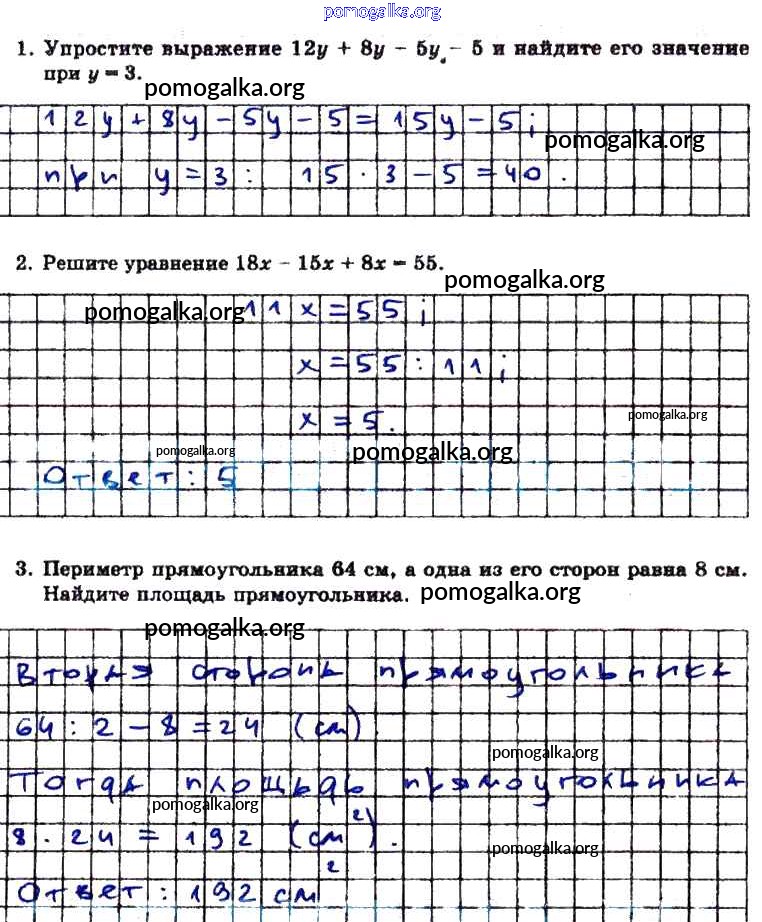 pomogalka.org
1. Упростите выражение 12y + 8y − 5y − 5 и найдите его значение
при y = 3.
pomogalka.org
12y + 8y − 5y − 5 = 15y − 5;
pomogalka.org
при y = 3: 15 · 3 − 5 = 40.
2. Решите уравнение 18x − 15x + 8x = 55.
pomogalka.org
pomogalka.org
11x = 55;
x = 55 : 11;
x = 5.
pomogalka.org
pomogalka.org
pomogalka.org
Ответ: 5
3. Периметр прямоугольника 64 см, а одна из его сторон равна 8 см.
Найдите площадь прямоугольника.
pomogalka.org
pomogalka.org
Вторая сторона прямоугольника
64 : 2 − 8 = 24 (см)
pomogalka.org
Тогда площадь прямоугольника
pomogalka.org
8 · 24 = 192 (см²).
pomogalka.org
Ответ: 192 см²